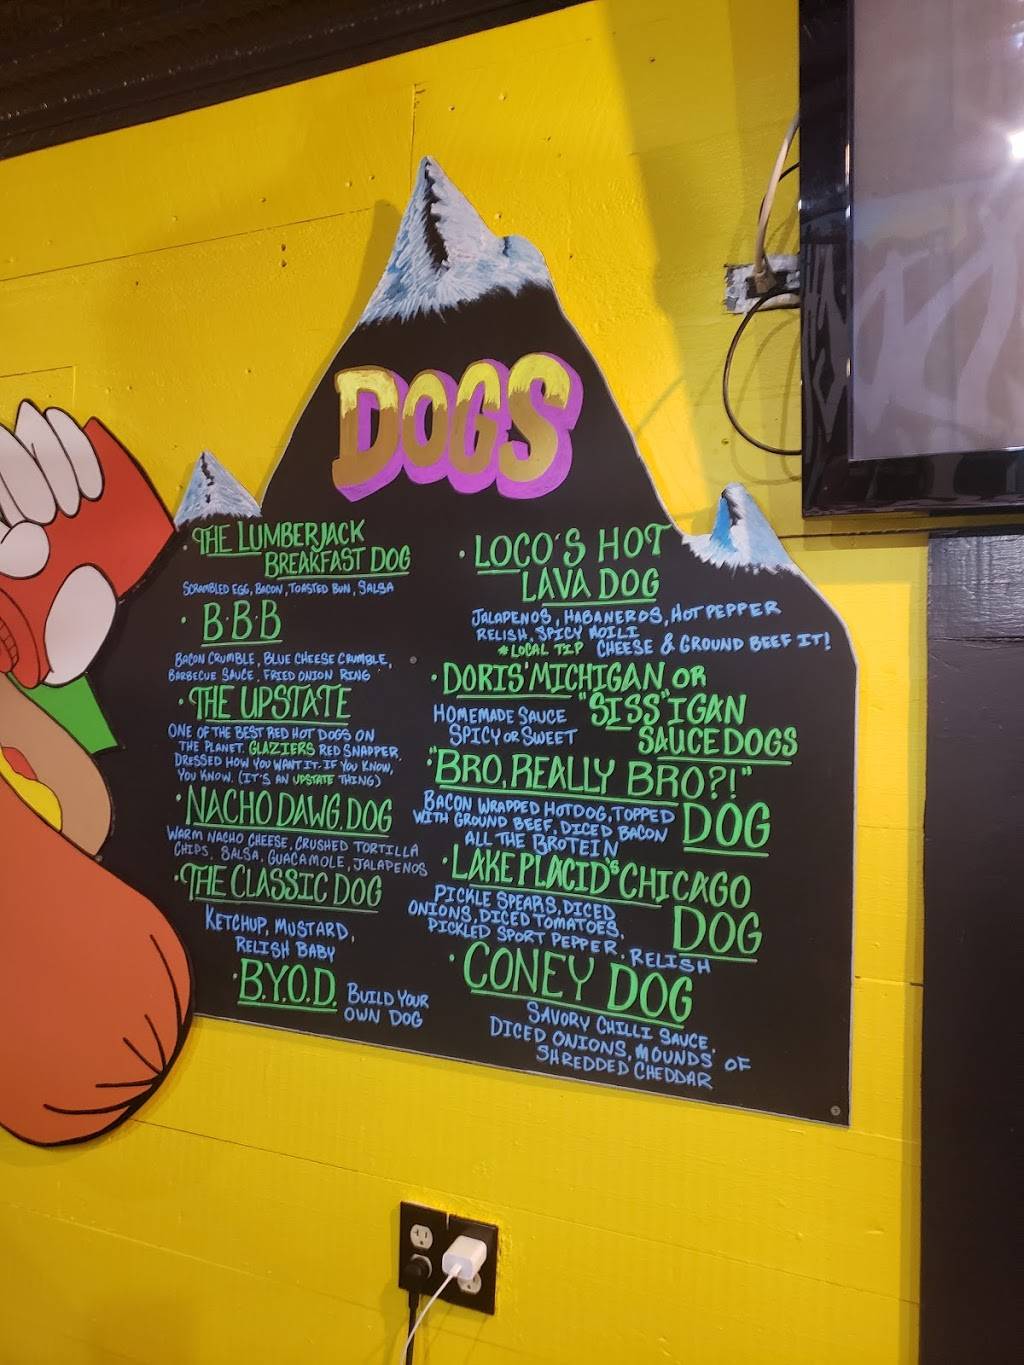 DOGS
THE LUMBERJACK
BREAKFAST DOG
SCRAMBLED EGG, BACON, TOASTED BUN, SALSA
B.B.B
BACON CRUMBLE, BLUE CHEESE CRUMBLE,
BARBECUE SAUCE, FRIED ONION RING
THE UPSTATE
ONE OF THE BEST RED HOT DOGS ON
THE PLANET. GLAZIERS RED SNAPPER
DRESSED HOW YOU WANT IT. IF YOU KNOW,
YOU KNOW. (IT'S AN UPSTATE THING)
NACHO DAWG, DOG
WARM NACHO CHEESE, CRUSHED TORTILLA
CHIPS, SALSA, GUACAMOLE, JALAPENOS
THE CLASSIC DOG
KETCHUP, MUSTARD,
RELISH BABY
B.Y.O.D. BUILD YOUR
OWN DOG
LOCO'S HOT
LAVA DOG
JALAPENOS, HABANEROS, HOT PEPPER
RELISH, SPICY MOILI
*LOCAL TIP CHEESE & GROUND BEEF IT!
DORIS' MICHIGAN OR
"SISS"IGAN
SAUCE DOGS
HOMEMADE SAUCE
SPICY OR SWEET
"BRO, REALLY BRO?!"
DOG
BACON WRAPPED HOTDOG, TOPPED
WITH GROUND BEEF, DICED BACON
ALL THE BROTEIN
LAKE PLACID'S CHICAGO
DOG
PICKLE SPEARS, DICED
ONIONS, DICED TOMATOES,
PICKLED SPORT PEPPER, RELISH
CONEY DOG
SAVORY CHILLI SAUCE,
DICED ONIONS, MOUNDS' OF
SHREDDED CHEDDAR